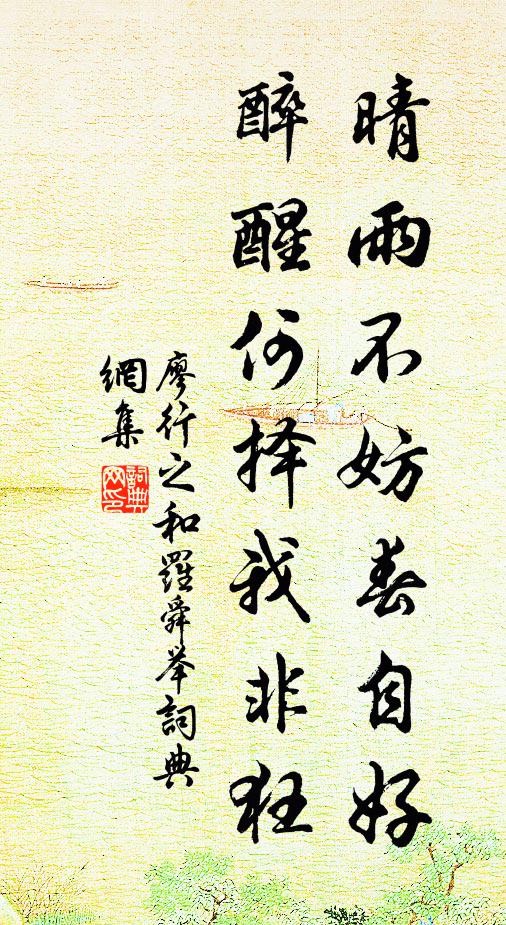 晴雨不妨春自好
醉醒何择我非狂
廖行之和羅舜举詞典
網集
詞典
网印